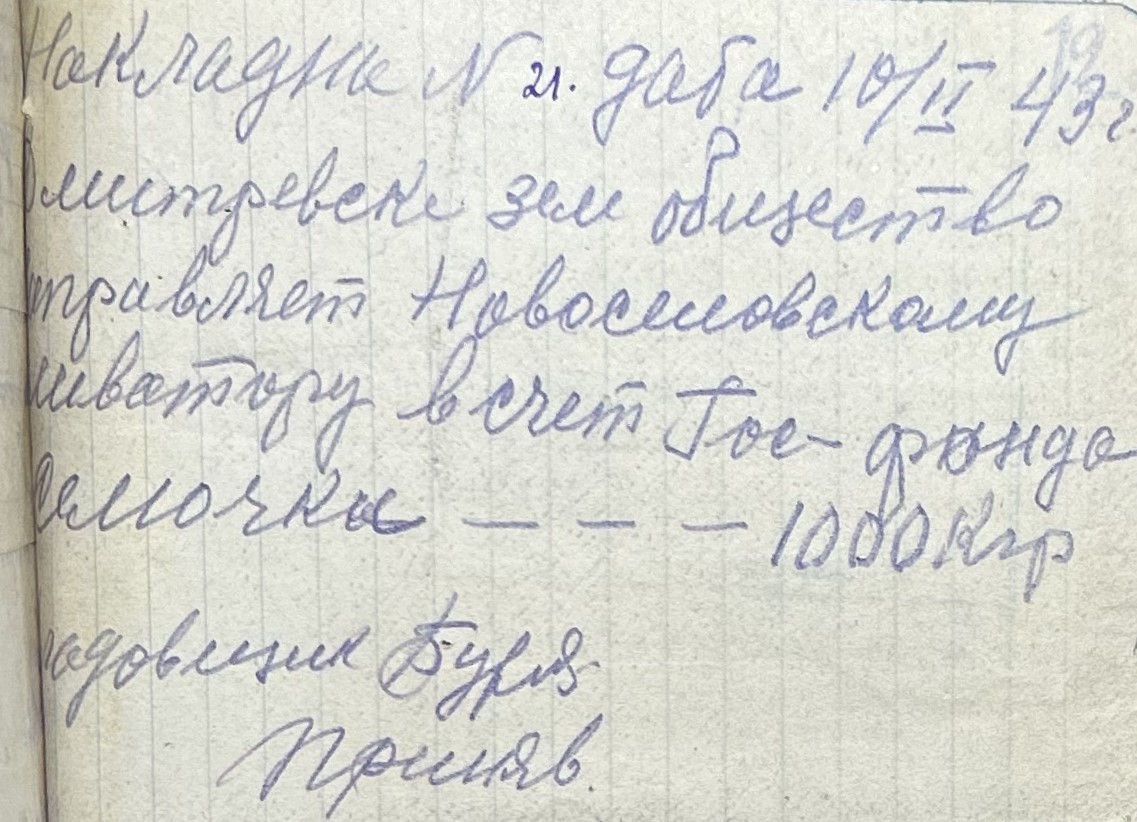 Накладна N 21. даба 10/II 43 г
Дмитревске зем общество
отправляет Новоселовскому
иватору в счет Гос-фонда
семочка — — — 1000 Кгр
ладовщик Буря
Приняв